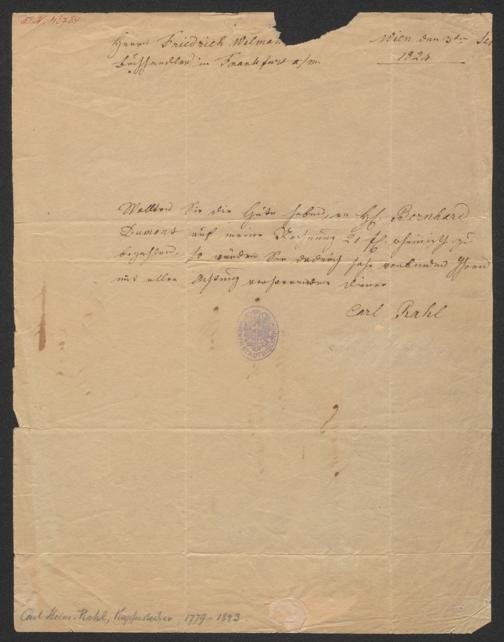 H.I.N. 48284
Herrn Friedrich Wilman
Wien den 3ten Se
Buchhändler in Frankfurt a/m.
1824
Wollten Sie die Güte haben, an H. Bernhard
Dumont auf meine Rechnung 21 f. rheinisch zu
bezahlen, so würden Sie dadurch sehr verbinden Ihren
mit aller Achtung verharrenden Diener
Carl Rahl
Carl Heinr. Rahl, Kupferstecher, 1779-1843